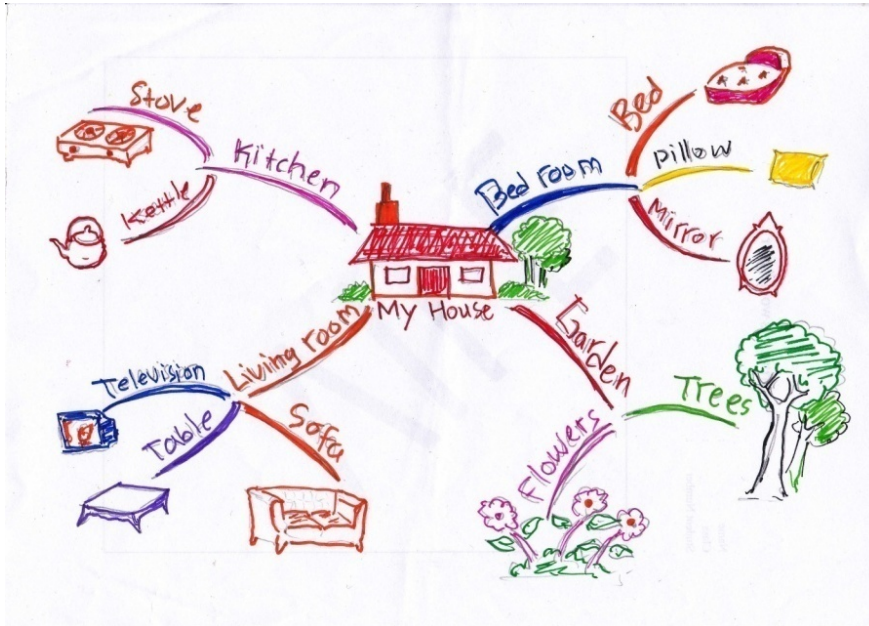 My House
Kitchen
Stove
Kettle
Bed room
Bed
pillow
Mirror
Living room
Television
Table
Sofa
Garden
Trees
Flowers